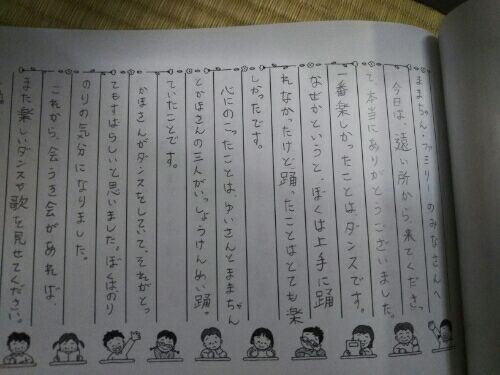 ままちゃんファミリーのみなさんへ
今日は、遠い所から、来てくださっ
て、本当にありがとうございました。
一番楽しかったことは、ダンスです。
なぜかというと、ぼくは上手に踊
れなかったけど踊ったことはとても楽
しかったです。
心にのこったことは、ゆいさんとままちゃん
とかほさんの三人がいっしょうけんめい踊っ
ていたことです。
かほさんがダンスをしていて、それがとっ
てもすばらしいと思いました。ぼくはのり
のりの気分になりました。
これから、会うき会があれば、
また楽しいダンスや歌を見せてください。